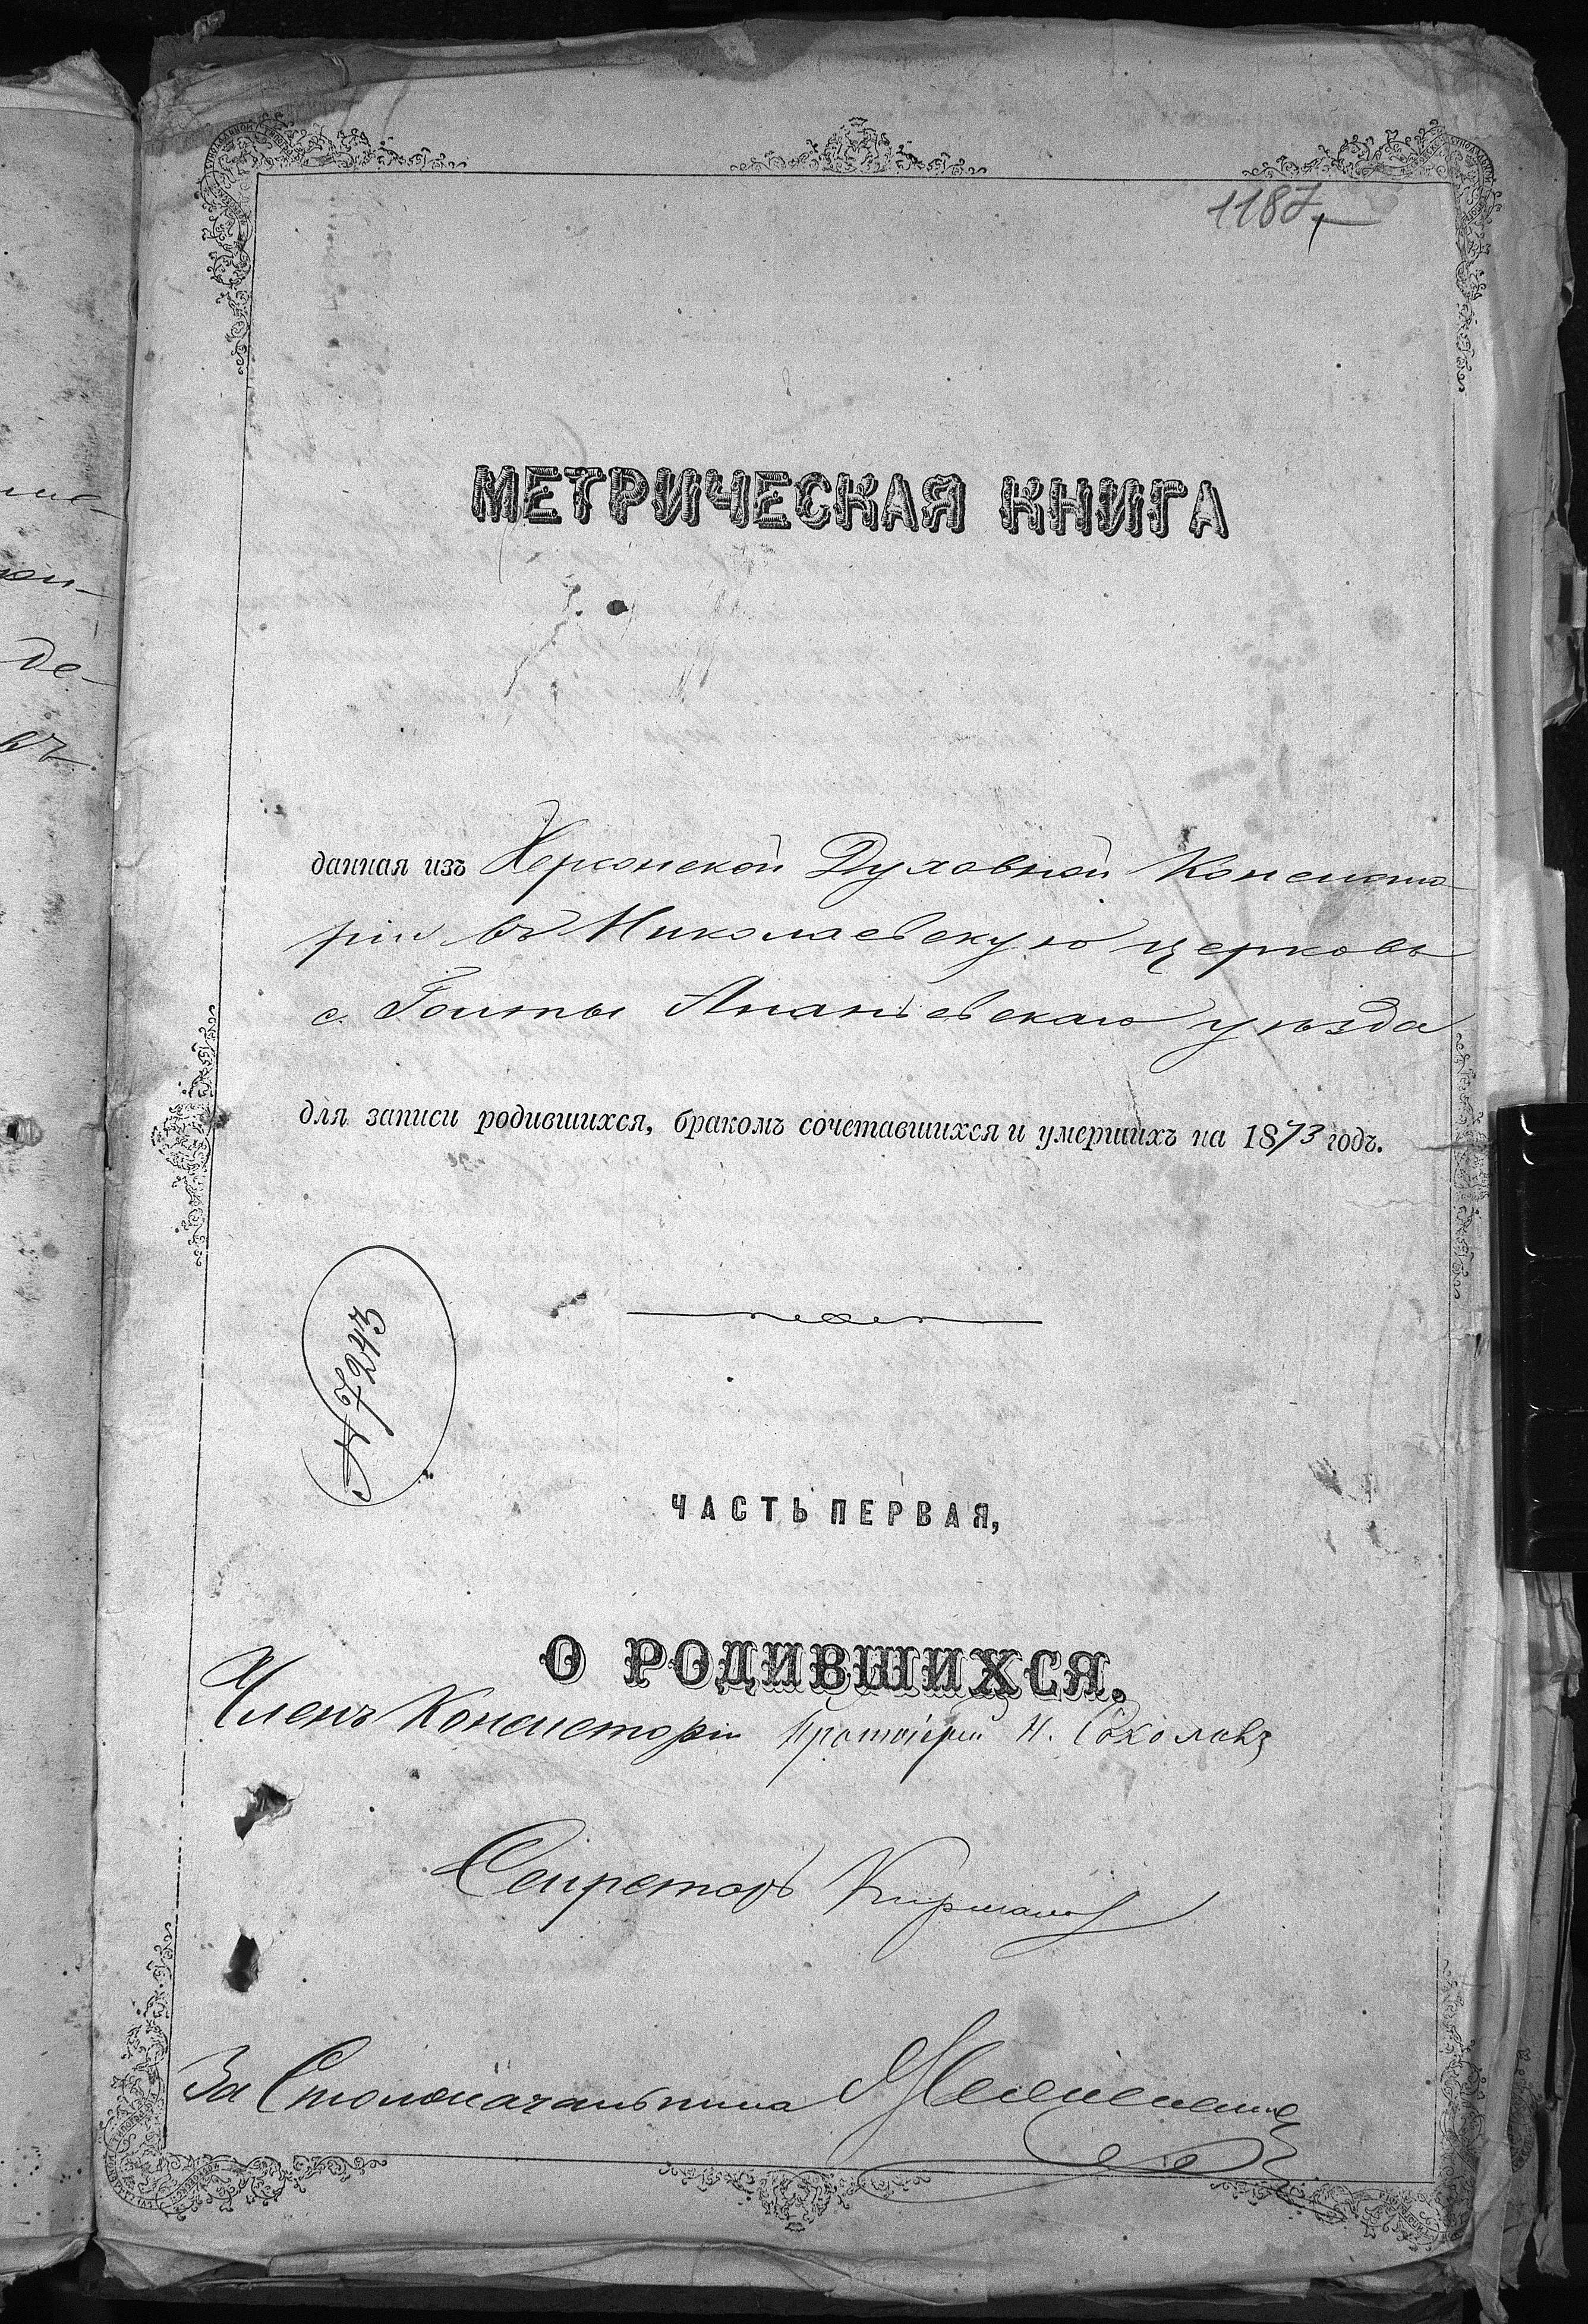 1187
МЕТРИЧЕСКАЯ КНИГА
данная изъ Херсонской Духовной Консисто-
ріи въ Николаевскую церковь
с. Гоитны Ананьевскаго уѣзда
для записи родившихся, бракомъ сочетавшихся и умершихъ на 1873 годъ.
№ 7243
ЧАСТЬ ПЕРВАЯ,
О РОДИВШИХСЯ.
Членъ Консисторіи Протоіерей Н. Соколовъ
Секретарь
За Столоначальника
де-
въ